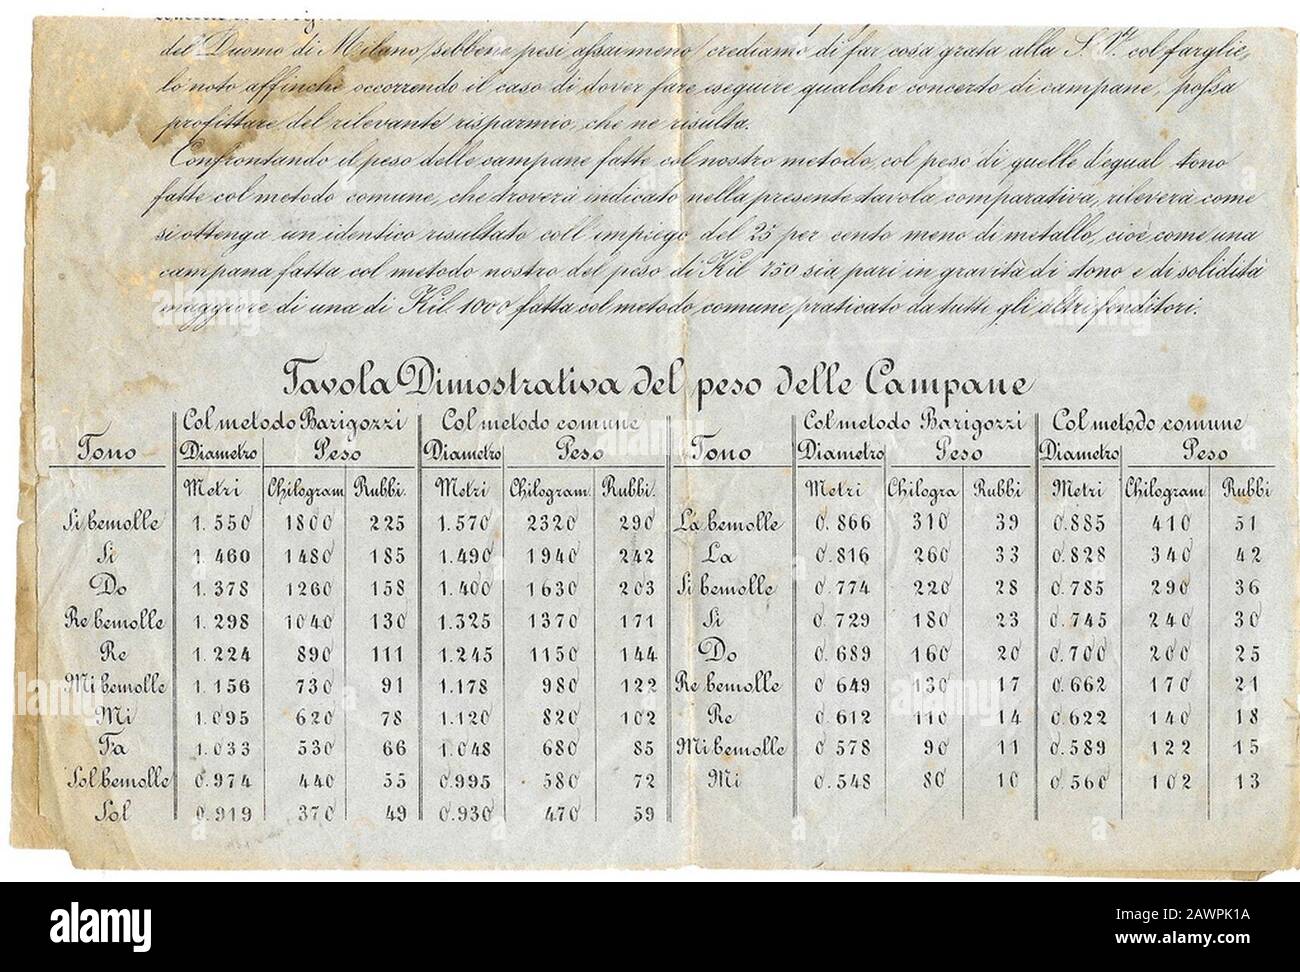 del Duomo di Milano sebbene pesi assai meno crediamo di far cosa grata alla S. V. col farglie,
lo noto affinchè occorrendo il caso di dover fare eseguire qualche concerto di campane, possa
profittare del rilevante risparmio, che ne risulta.
Confrontando il peso delle campane fatte col nostro metodo, col peso di quelle d'egual tono
fatte col metodo comune, che troverà indicato nella presente tavola comparativa, rileverà come
si ottenga un identico risultato coll impiego del 25 per cento meno di metallo, cioè come una
campana fatta col metodo nostro del peso di Kil 750 sia pari in gravità di tono e di solidità
maggiore di una di Kil. 1000 fatta col metodo comune praticato da tutti gli altri fonditori.
Tavola Dimostrativa del peso delle Campane
Tono Col metodo Barigozzi Col metodo comune Tono Col metodo Barigozzi Col metodo comune
Diametro Peso Diametro Peso Diametro Peso Diametro Peso
Metri Chilogram Rubbi. Metri Chilogram. Rubbi. Metri Chilogra Rubbi Metri Chilogram Rubbi
Si bemolle 1.550 1800 225 1.570 2320 290 La bemolle 0.866 310 39 0.885 410 51
Si 1.460 1480 185 1.490 1940 242 La 0.816 260 33 0.828 340 42
Do 1.378 1260 158 1.400 1630 203 Si bemolle 0.774 220 28 0.785 290 36
Re bemolle 1.298 1040 130 1.325 1370 171 Si 0.729 180 23 0.745 240 30
Re 1.224 890 111 1.245 1150 144 Do 0.689 160 20 0.700 200 25
Mi bemolle 1.156 730 91 1.178 980 122 Re bemolle 0.649 130 17 0.662 170 21
Mi 1.095 620 78 1.120 820 102 Re 0.612 110 14 0.622 140 18
Fa 1.033 530 66 1.048 680 85 Mi bemolle 0.578 90 11 0.589 122 15
Sol bemolle 0.974 440 55 0.995 580 72 Mi 0.548 80 10 0.560 102 13
Sol 0.919 370 49 0.930 470 59
alamy
Image ID: 2AWPK1A
www.alamy.com